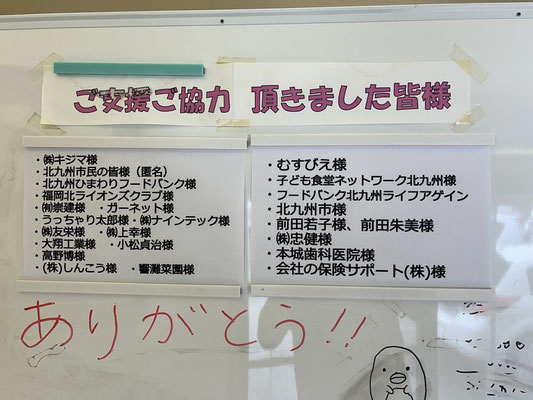 ご支援ご協力 頂きました皆様
・㈱キジマ様
・北九州市民の皆様（匿名）
・北九州ひまわりフードバンク様
・福岡北ライオンズクラブ様
・㈲崇建様 ・ガーネット様
・うっちゃり太郎様・㈱ナインテック様
・㈱友栄様 ・㈱上幸様
・大翔工業様 ・小松貞治様
・高野博様
・(株)しんこう様 ・響灘菜園様
・むすびえ様
・子ども食堂ネットワーク北九州様
・フードバンク北九州ライフアゲイン
・北九州市様
・前田若子様、前田朱美様
・㈱忠健様
・本城歯科医院様
・会社の保険サポート(株)様
ありがとう!!